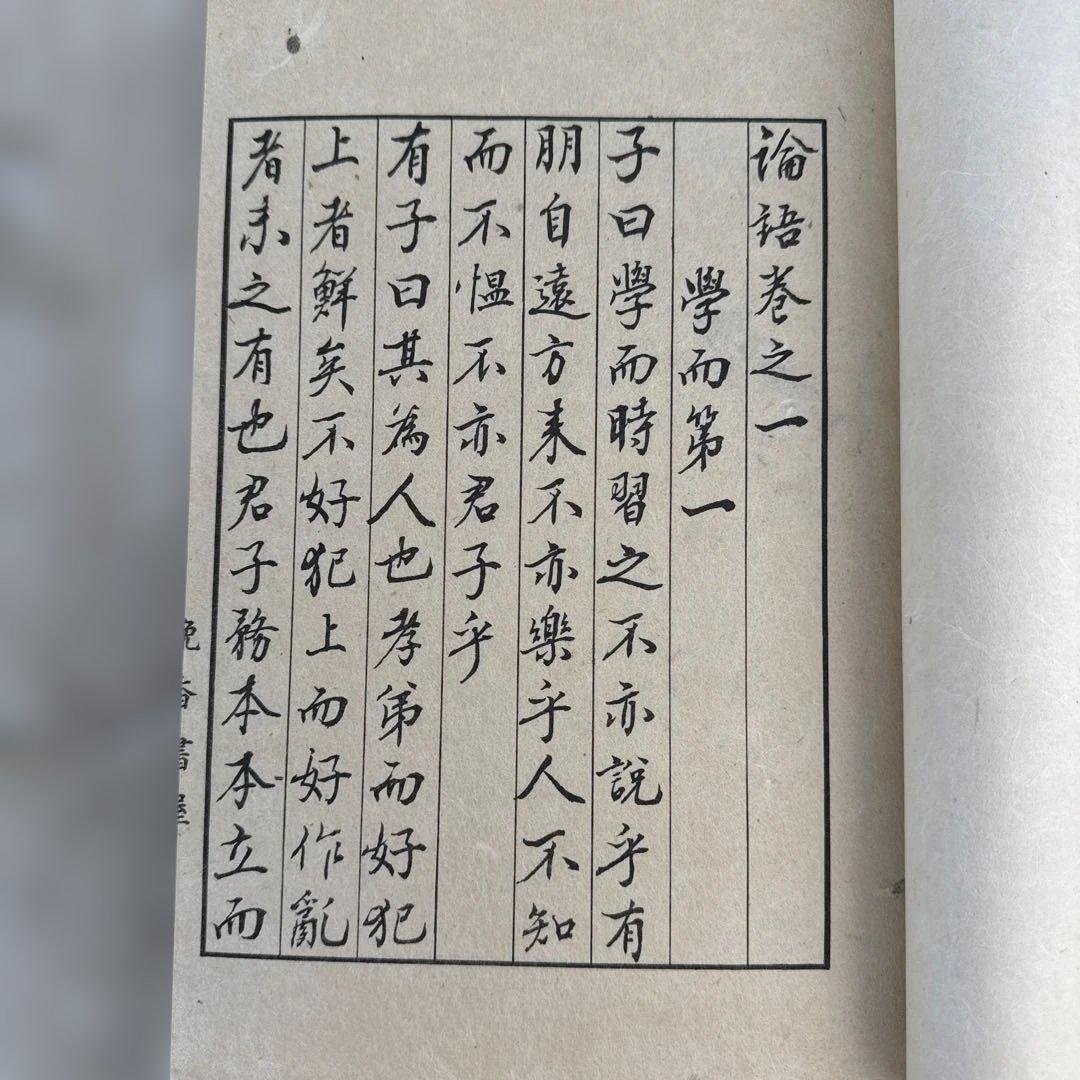 論語卷之一
學而第一
子曰學而時習之不亦說乎有
朋自遠方来不亦樂乎人不知
而不慍不亦君子乎
有子曰其為人也孝弟而好犯
上者鮮矣不好犯上而好作亂
者未之有也君子務本本立而
晚香書屋